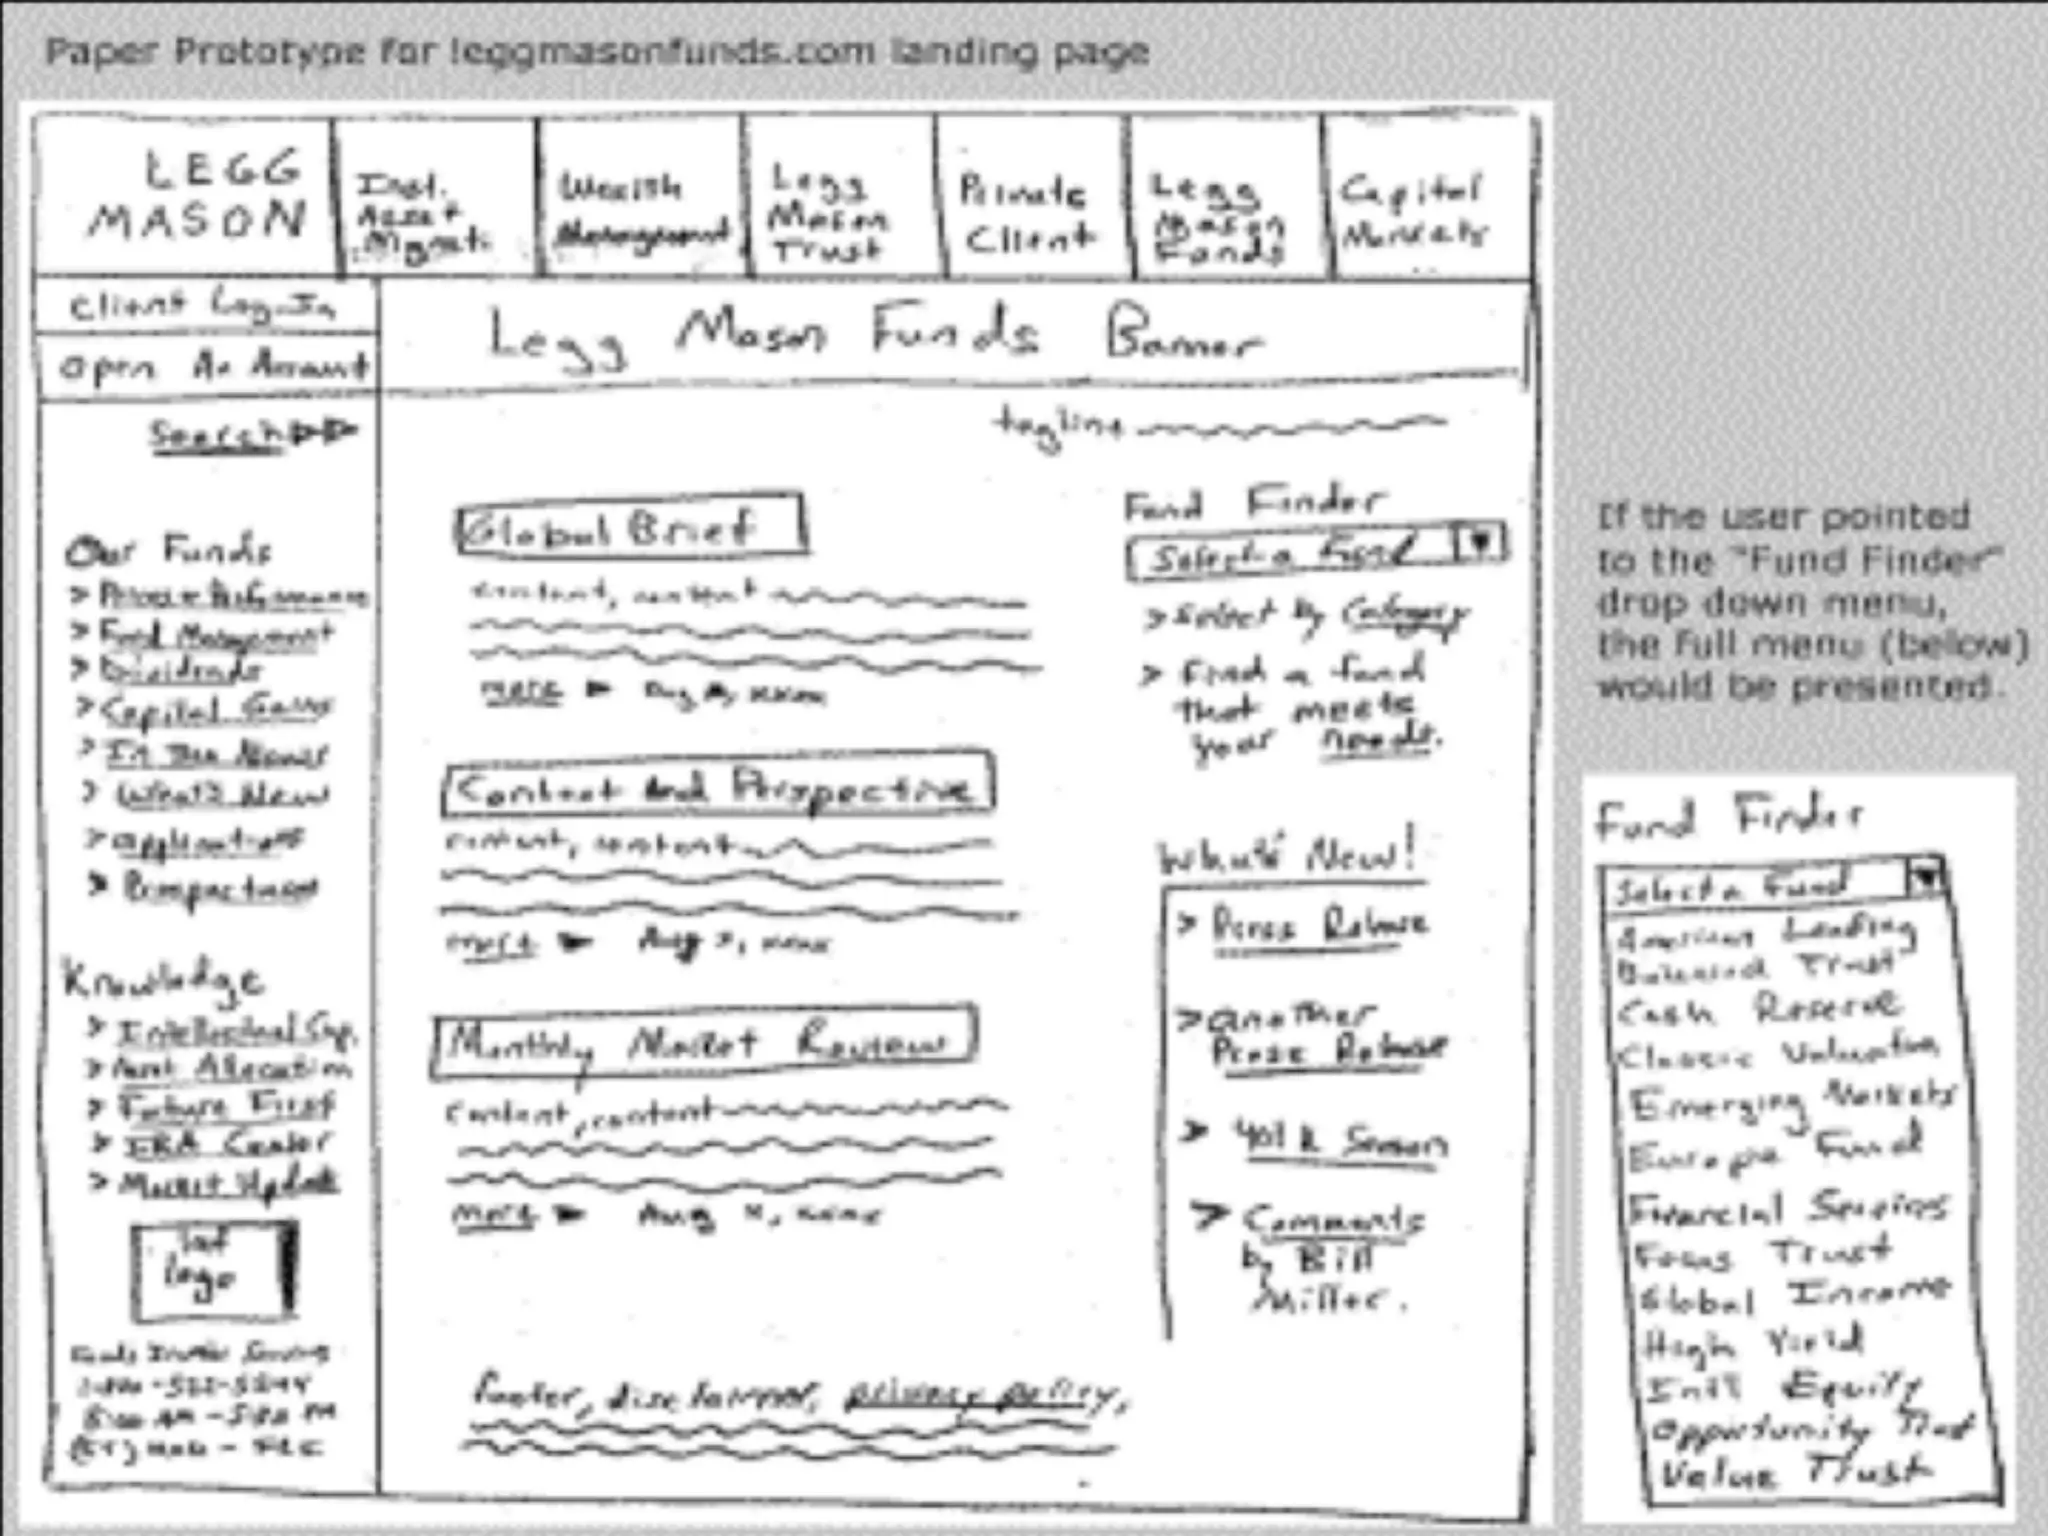 Paper Prototype for leggmasonfunds.com landing page
LEGG
MASON
Inst.
Asset
Mgmt.
Wealth
Management
Legg
Mason
Trust
Private
Client
Legg
Mason
Funds
Capital
Markets
Client Log-In
Open An Account
Legg Mason Funds Banner
Search
tagline
Our Funds
> Price & Performance
> Fund Management
> Dividends
> Capital Gains
> In The News
> What's New
> Applications
> Prospectuses
Knowledge
> Intellectual Cap.
> Asset Allocation
> Future First
> IRA Center
> Market Update
logo
8:00 AM - 5:00 PM
Global Brief
content, content
more
Context And Perspective
content, content
more Aug x, xxxx
Monthly Market Review
content, content
more Aug x, xxxx
Fund Finder
Select a Fund
> Select by Category
> Find a fund
that meets
your needs.
What's New!
> Press Release
> another
Press Release
> 401k
> Comments
by Bill
Miller.
footer, disclaimer, privacy policy,
If the user pointed
to the "Fund Finder"
drop down menu,
the full menu (below)
would be presented.
Fund Finder
Select a Fund
American Leading
Balanced Trust
Cash Reserve
Classic Valuation
Emerging Markets
Europe Fund
Financial Services
Focus Trust
Global Income
High Yield
Int'l Equity
Opportunity Trust
Value Trust